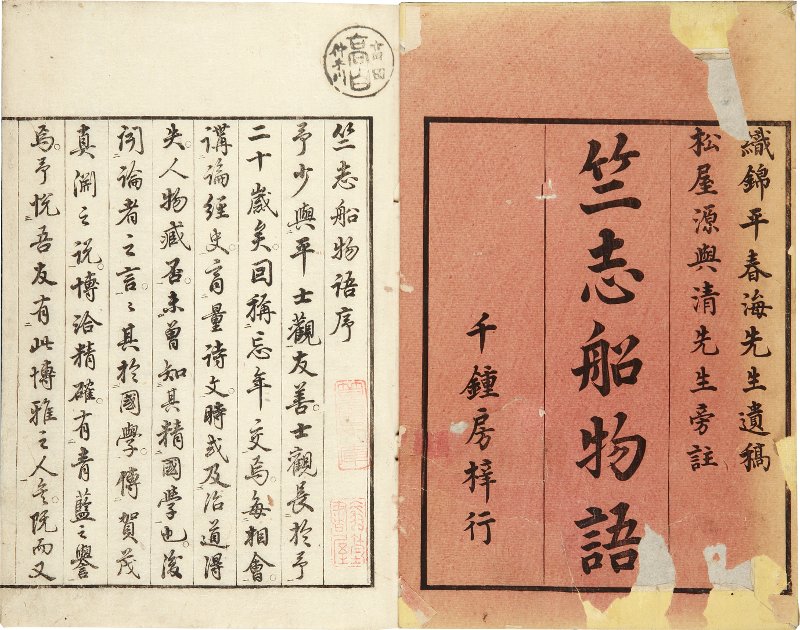 織錦平春海先生遺稿
松屋源與清先生旁註
竺志船物語
千鍾房梓行
竺志船物語序
予少與平士觀友善。士觀長於予
二十歲矣。回稱忘年交焉。每相會。
講論經史。商量詩文。時或及治道得
失。人物臧否。未曾知其精國學也。後
訶論者之言。言其於國學。傳賀茂
真淵之說。博洽精確。有青藍之譽
焉。予悅吾友有此博雅之人矣。既而又